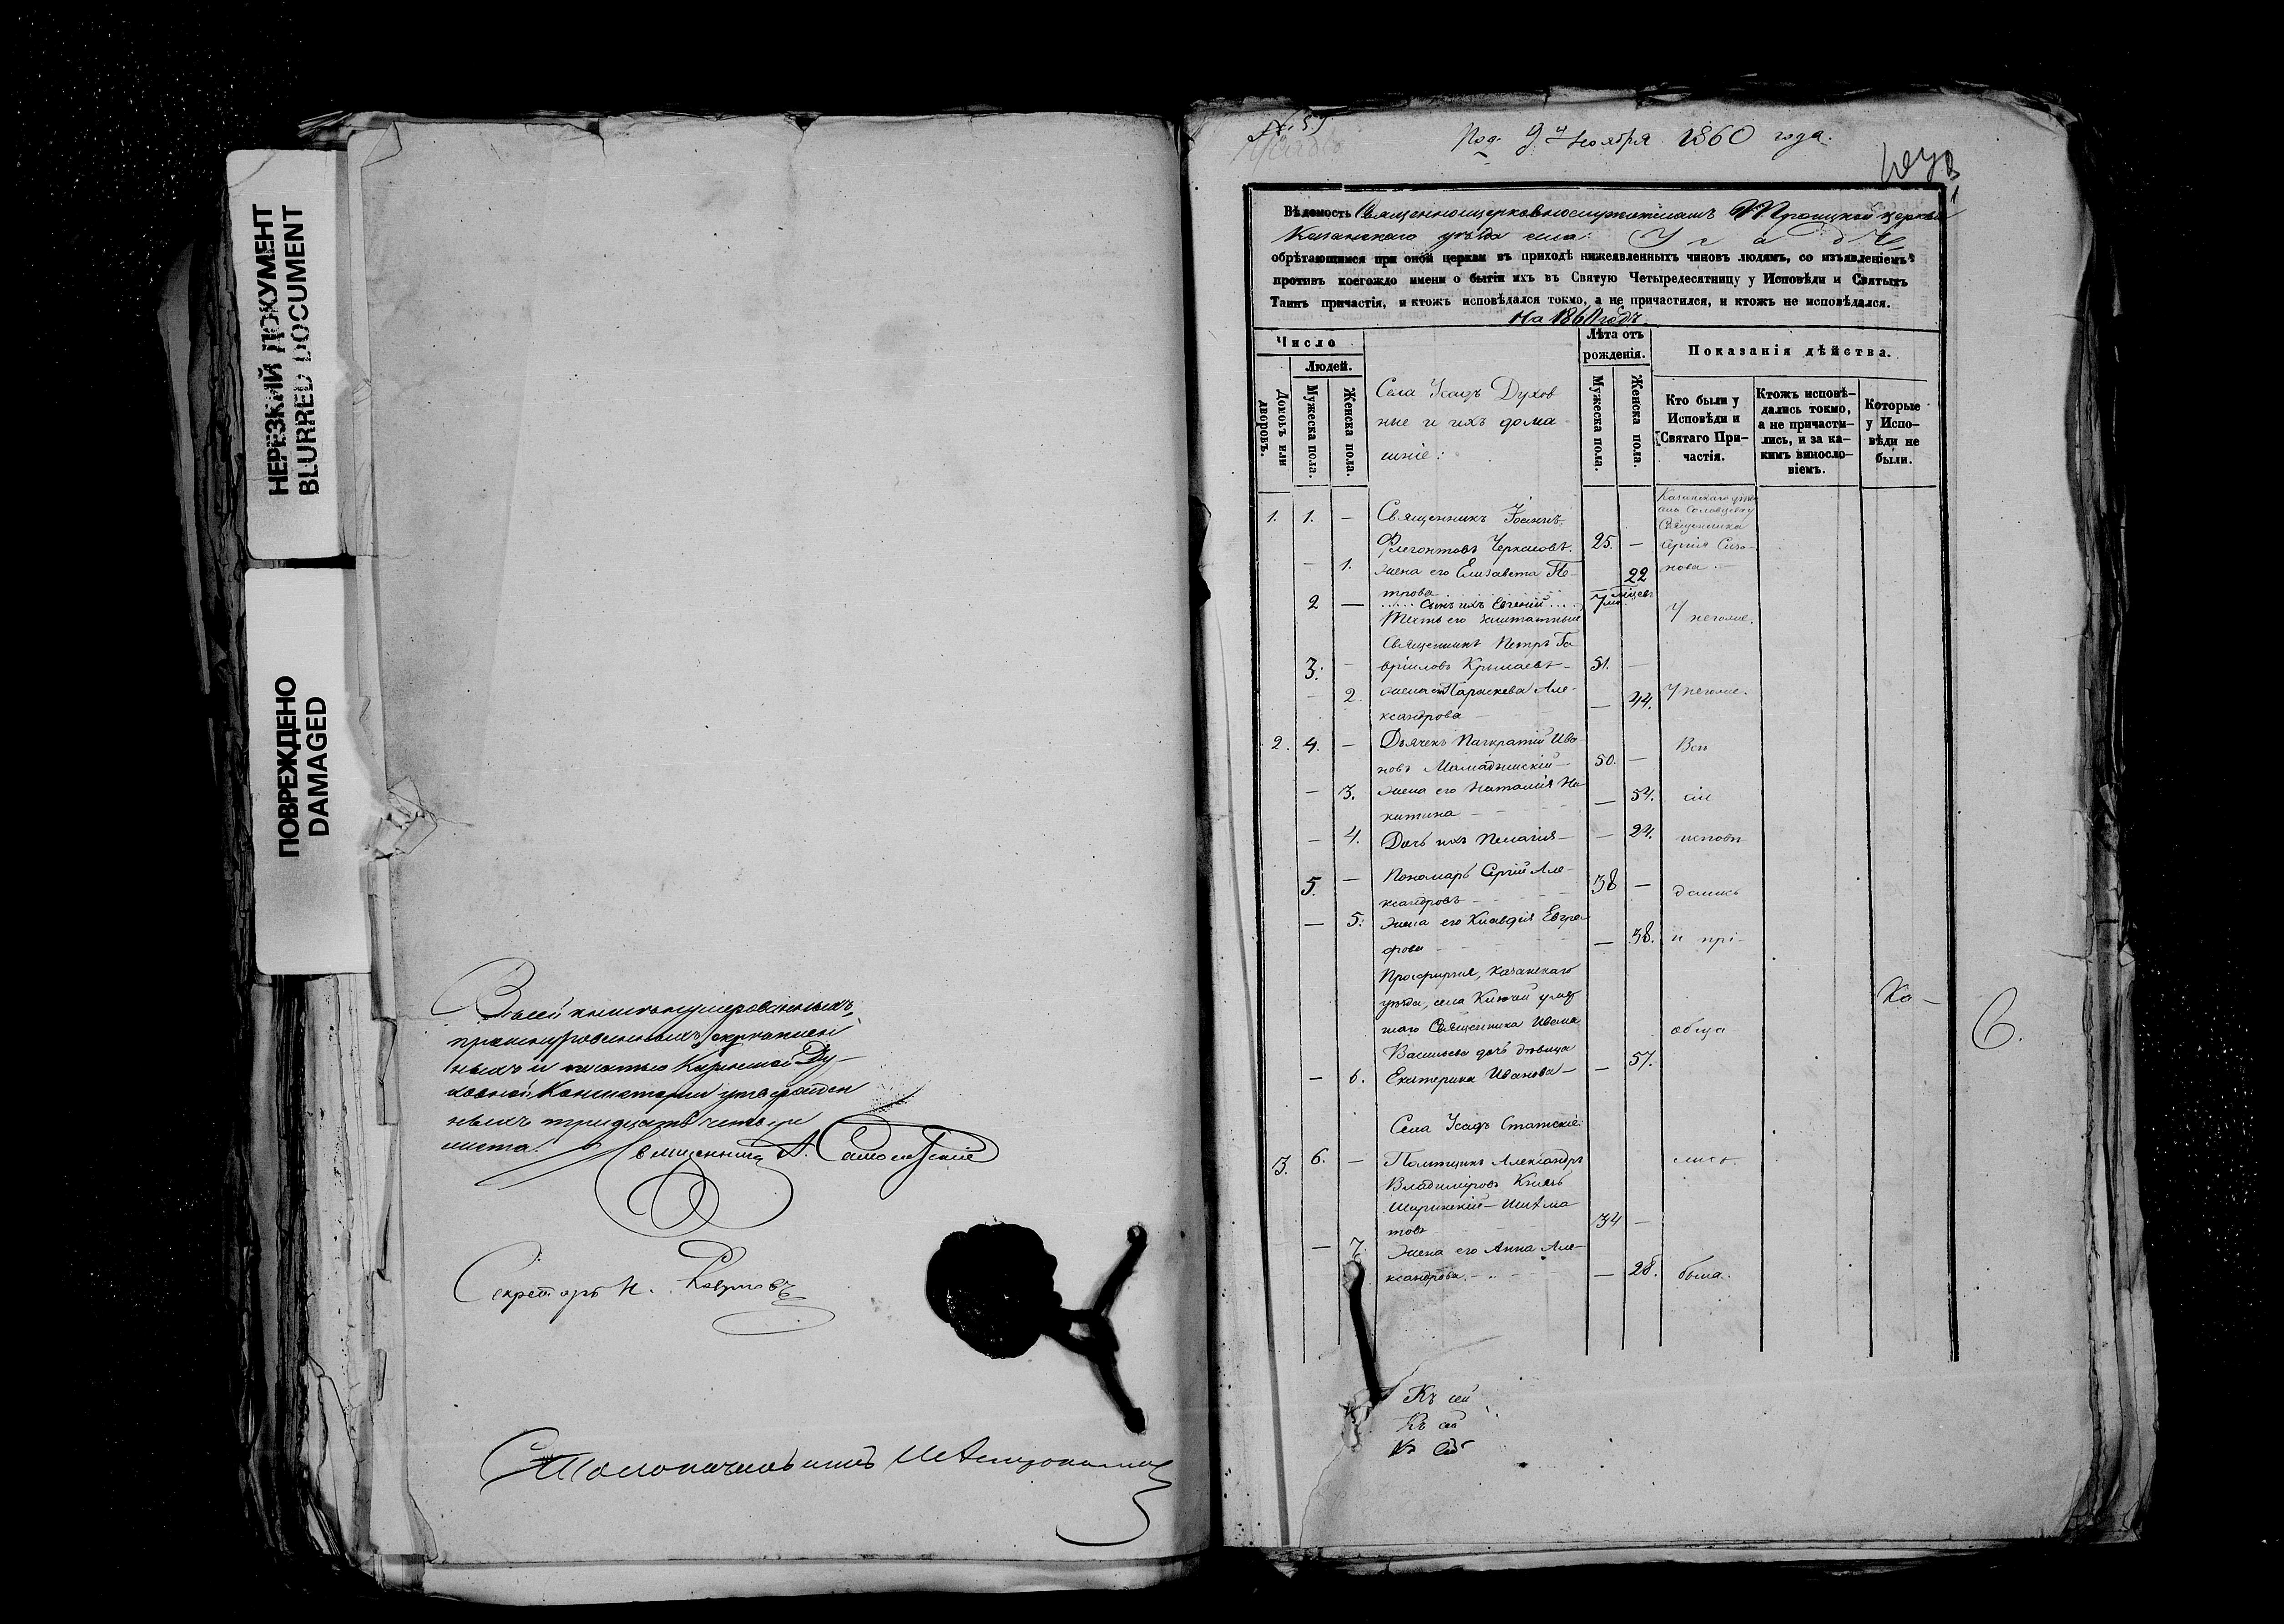 НЕРЕЗКИЙ ДОКУМЕНТ
BLURRED DOCUMENT
ПОВРЕЖДЕНО
DAMAGED
В сей книге нумерованныхъ,
прошнурованныхъ, скрепленныхъ
и печатью Казанской Ду-
ховной Консисторіи утвержден
ныхъ тридцать четыре
листа.
Священникъ А.
Секретарь И.
Столоначальникъ
Под. 9 Ноября 1860 года.
Вѣдомость Священноцерковнослужителямъ Троицкой церкви
Казанскаго уѣзда села Усадъ
обрѣтающимся при оной церкви въ приходѣ нижеявленныхъ чиновъ людямъ, со изъявленіемъ
противъ коегождо имени о бытіи ихъ въ Святую Четыредесятницу у Исповѣди и Святыхъ
Таинъ причастія, и ктожъ исповѣдался токмо, а не причастился, и ктожъ не исповѣдался.
На 1860 годъ.
Число
Людей.
Домовъ или дворовъ.
Мужеска пола.
Женска пола.
Села Усадъ Духов
ные и ихъ дома
шніе:
Лѣта отъ рожденія.
Мужеска пола.
Женска пола.
Показанія дѣйства.
Кто были у Исповѣди и Святаго Причастія.
Ктожъ исповѣ-
дались токмо,
а не причасти-
лись, и за ка-
кимъ винословіемъ.
Которые
у Испо-
вѣди не
были.
Казанскаго уѣзда
села
Священника
Сергія
1. 1. — Священникъ Іоаннъ
Флегонтовъ Черкасовъ. 25. —
— 1. Жена его Елизавета Пе-
трова 22
2 — Сынъ ихъ Евгеній 7 мѣсяцев
Тесть его заштатный У негоже.
Священникъ Петръ Га
3. — вріиловъ Крылаевъ — 51. —
— 2. Жена его Параскева Але-
ксандрова — 44. У негоже.
2. 4. — Дьячекъ Панкратій Ива
новъ Мамадышскій — 50. — Всѣ
— 3. Жена его Наталія Ни-
китина — 54. сіи
— 4. Дочь ихъ Пелагія — — 24. исповѣ
5. — Пономарь Сергій Але-
ксандровъ 38 — дались
— 5. Жена его Клавдія Евгра-
фова — 38. и прі-
Просфирня, Казанскаго
уѣзда, села Ключей умер
шаго Священника Ивана
Васильева дочь дѣвица
— 6. Екатерина Иванова — — 57. обща
Ко —
6.
Села Усадъ Статскіе:
3. 6. — Помѣщикъ Александръ лись.
Владиміровъ Князь
Ширинскій-Шихма
товъ 34 —
— 7. Жена его Анна Але-
ксандрова. — 28. была.
Къ сей
Къ сей
Къ сей